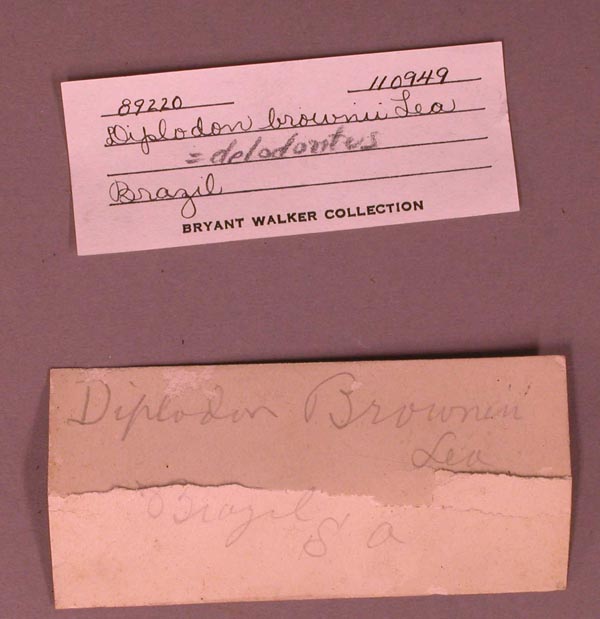 89220 110949
Diplodon brownii Lea
= delodontus
Brazil
BRYANT WALKER COLLECTION
Diplodon Brownii
Lea
Brazil
S a